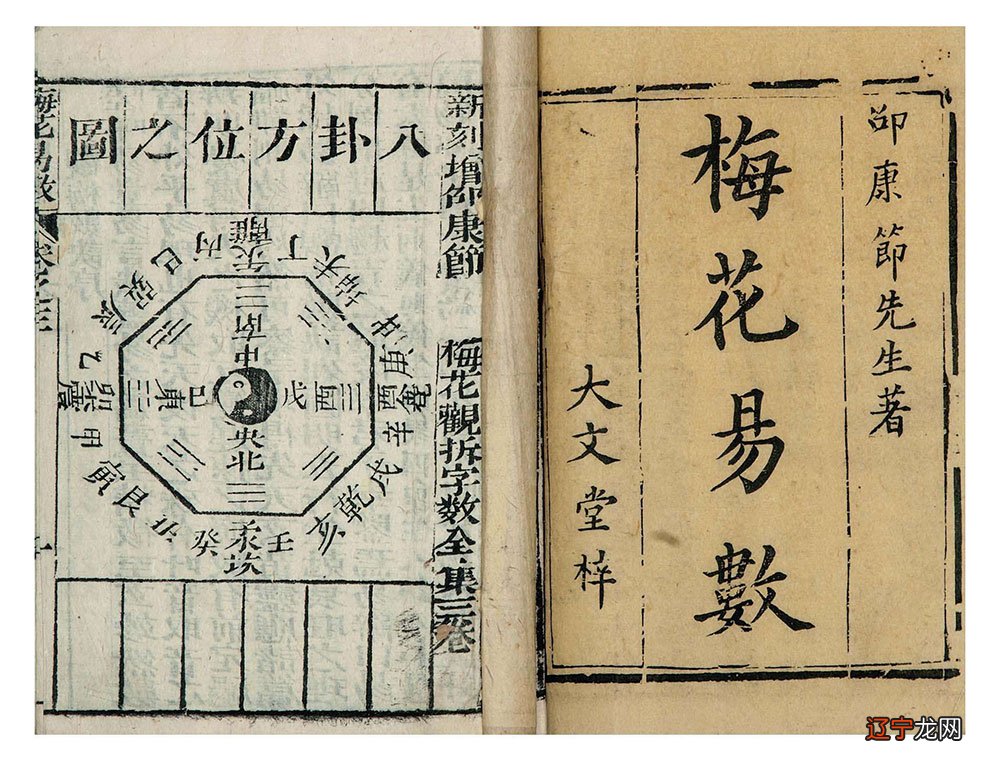 邵康節先生著
梅花易數
大文堂梓
新刻增邵康節
梅花觀拆字數全集三卷
八卦方位之圖
丙 午 離 丁
未 坤
申 庚 酉 兌 辛
戌 乾 亥
壬 子 坎 癸
丑 艮 寅
甲 卯 震 乙
辰 巽 巳
南
中
央
北
東 巳
戊 酉
梅花易數
卷之三
辽宁龙网